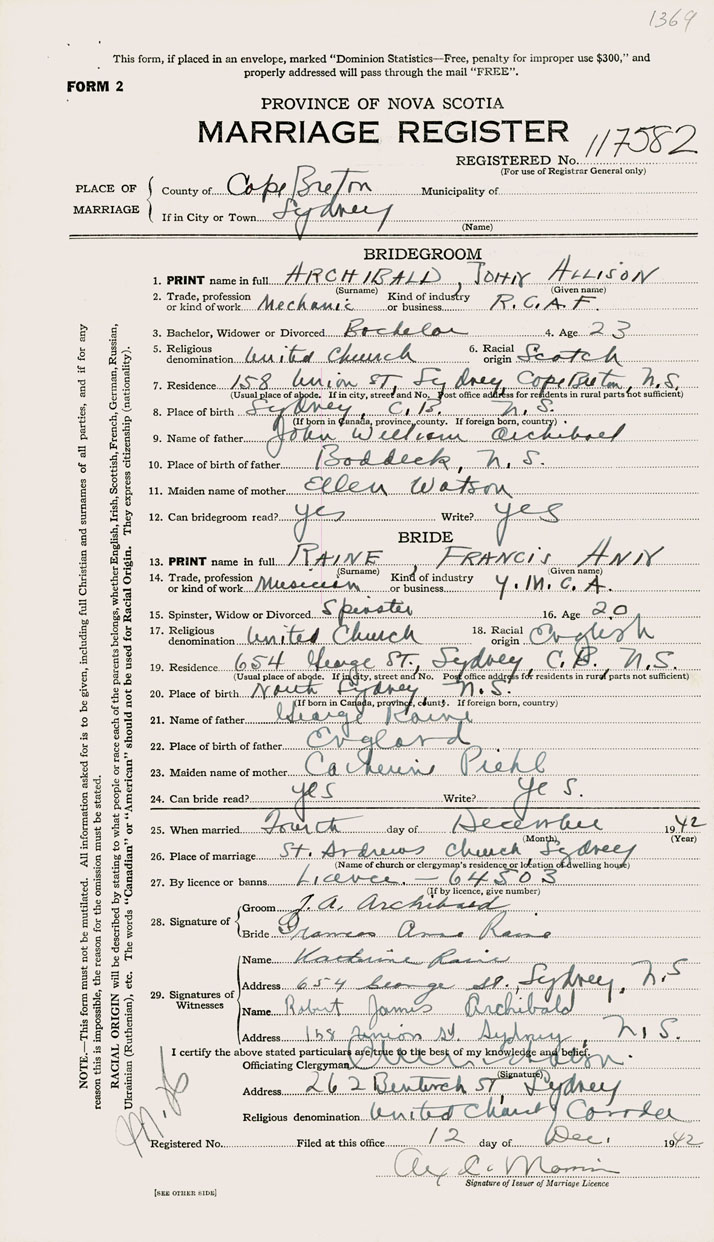 1369
This form, if placed in an envelope, marked "Dominion Statistics—Free, penalty for improper use $300," and
properly addressed will pass through the mail "FREE".
FORM 2
PROVINCE OF NOVA SCOTIA
MARRIAGE REGISTER
REGISTERED No. 117582
(For use of Registrar General only)
PLACE OF MARRIAGE
County of Cape Breton Municipality of
If in City or Town Sydney
(Name)
BRIDEGROOM
1. PRINT name in full ARCHIBALD, JOHN ALLISON
(Surname) (Given name)
2. Trade, profession or kind of work Mechanic Kind of industry or business R.C.A.F.
3. Bachelor, Widower or Divorced Bachelor 4. Age 23
5. Religious denomination United Church 6. Racial origin Scotch
7. Residence 158 Union St, Sydney, Cape Breton, N.S.
(Usual place of abode. If in city, street and No. Post office address for residents in rural parts not sufficient)
8. Place of birth Sydney, C.B. N.S.
(If born in Canada, province, county. If foreign born, country)
9. Name of father John William Archibald
10. Place of birth of father Baddeck, N.S.
11. Maiden name of mother Ellen Watson
12. Can bridegroom read? yes Write? yes
BRIDE
13. PRINT name in full RAINE, FRANCIS ANN
(Surname) (Given name)
14. Trade, profession or kind of work Musician Kind of industry or business Y.M.C.A.
15. Spinster, Widow or Divorced Spinster 16. Age 20
17. Religious denomination United Church 18. Racial origin English
19. Residence 654 George St., Sydney, C.B., N.S.
(Usual place of abode. If in city, street and No. Post office address for residents in rural parts not sufficient)
20. Place of birth North Sydney N.S.
(If born in Canada, province, county. If foreign born, country)
21. Name of father George Raine
22. Place of birth of father England
23. Maiden name of mother Catherine Piehl
24. Can bride read? yes Write? yes.
25. When married Fourth day of December 1942
(Month) (Year)
26. Place of marriage St. Andrews Church Sydney
(Name of church or clergyman's residence or location of dwelling house)
27. By licence or banns Licence - 64503
(If by licence, give number)
28. Signature of
Groom J.A. Archibald
Bride Frances Anne Raine
29. Signatures of Witnesses
Name Katherine Raine
Address 654 George St., Sydney, N.S
Name Robert James Archibald
Address 158 Union St. Sydney, N.S.
I certify the above stated particulars are true to the best of my knowledge and belief.
Officiating Clergyman
(Signature)
Address 262 St, Sydney
Religious denomination United Church Canada
Registered No. Filed at this office 12 day of Dec. 1942
Signature of Issuer of Marriage Licence
[SEE OTHER SIDE]
NOTE.—This form must not be mutilated. All information asked for is to be given, including full Christian and surnames of all parties, and if for any
reason this is impossible, the reason for the omission must be stated.
RACIAL ORIGIN will be described by stating to what people or race each of the parents belongs, whether English, Irish, Scottish, French, German, Russian,
Ukrainian (Ruthenian), etc. The words "Canadian" or "American" should not be used for Racial Origin. They express citizenship (nationality).